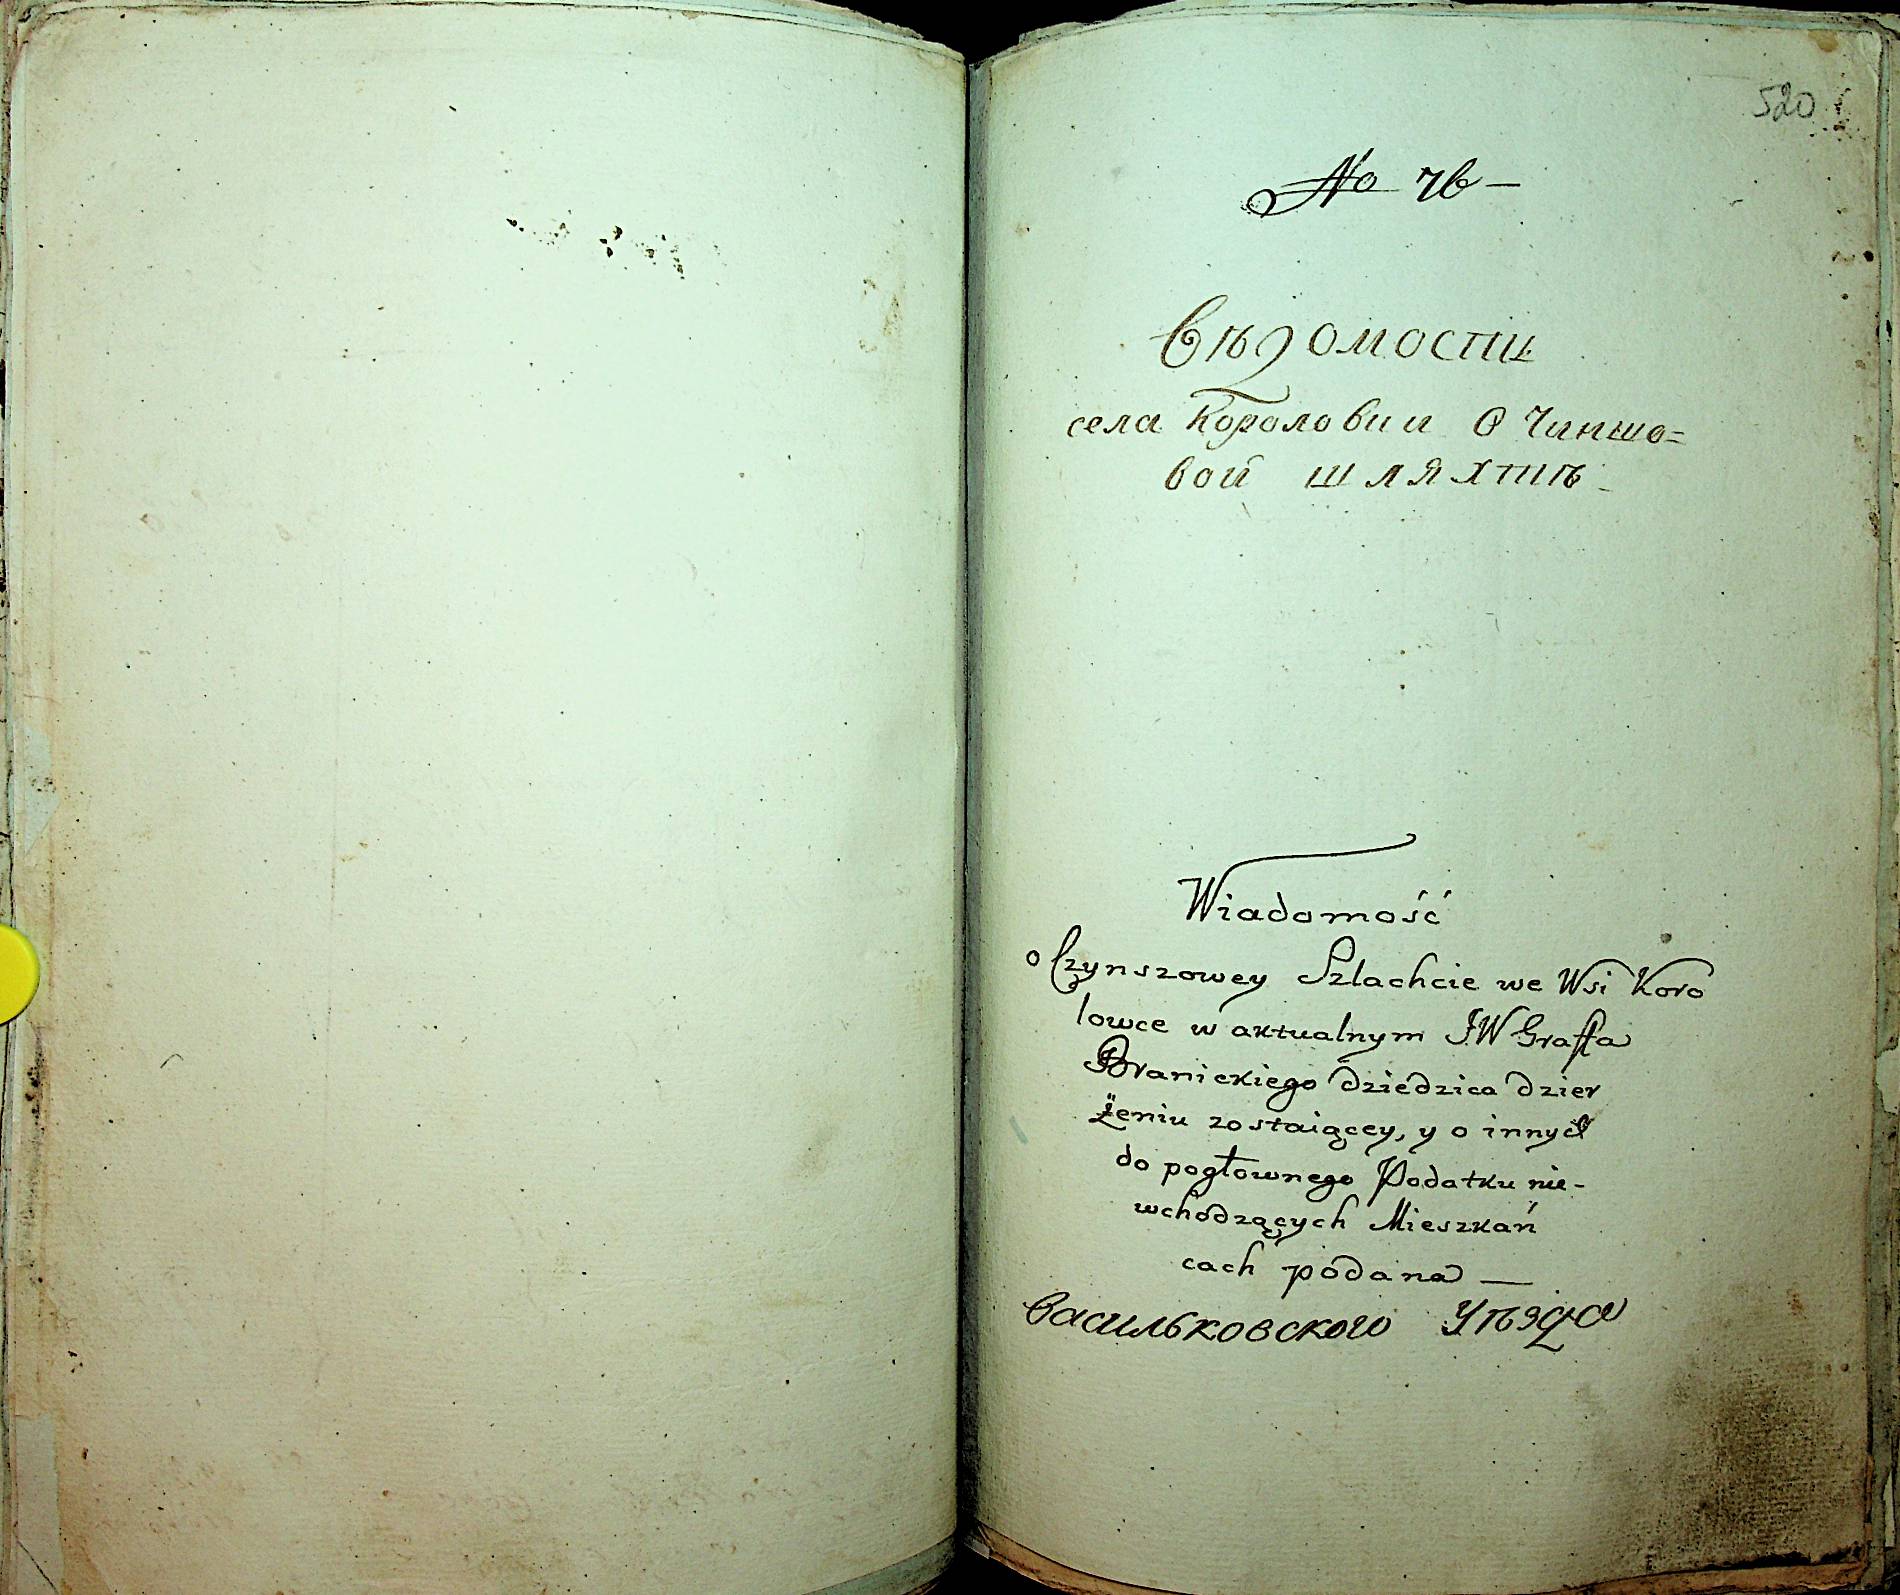 520
No 76 —
Вѣдомость
села Короловии О Чиншо=
вой шляхтѣ
Wiadomość
o Czynszowey Szlachcie we Wsi Koro
lowce w aktualnym JW Graffa
Branickiego dziedzica dzier
żeniu zostaiącey, y o innych
do pogłownego Podatku nie-
wchodzących Mieszkań
cach podana —
Васильковского Уѣзда